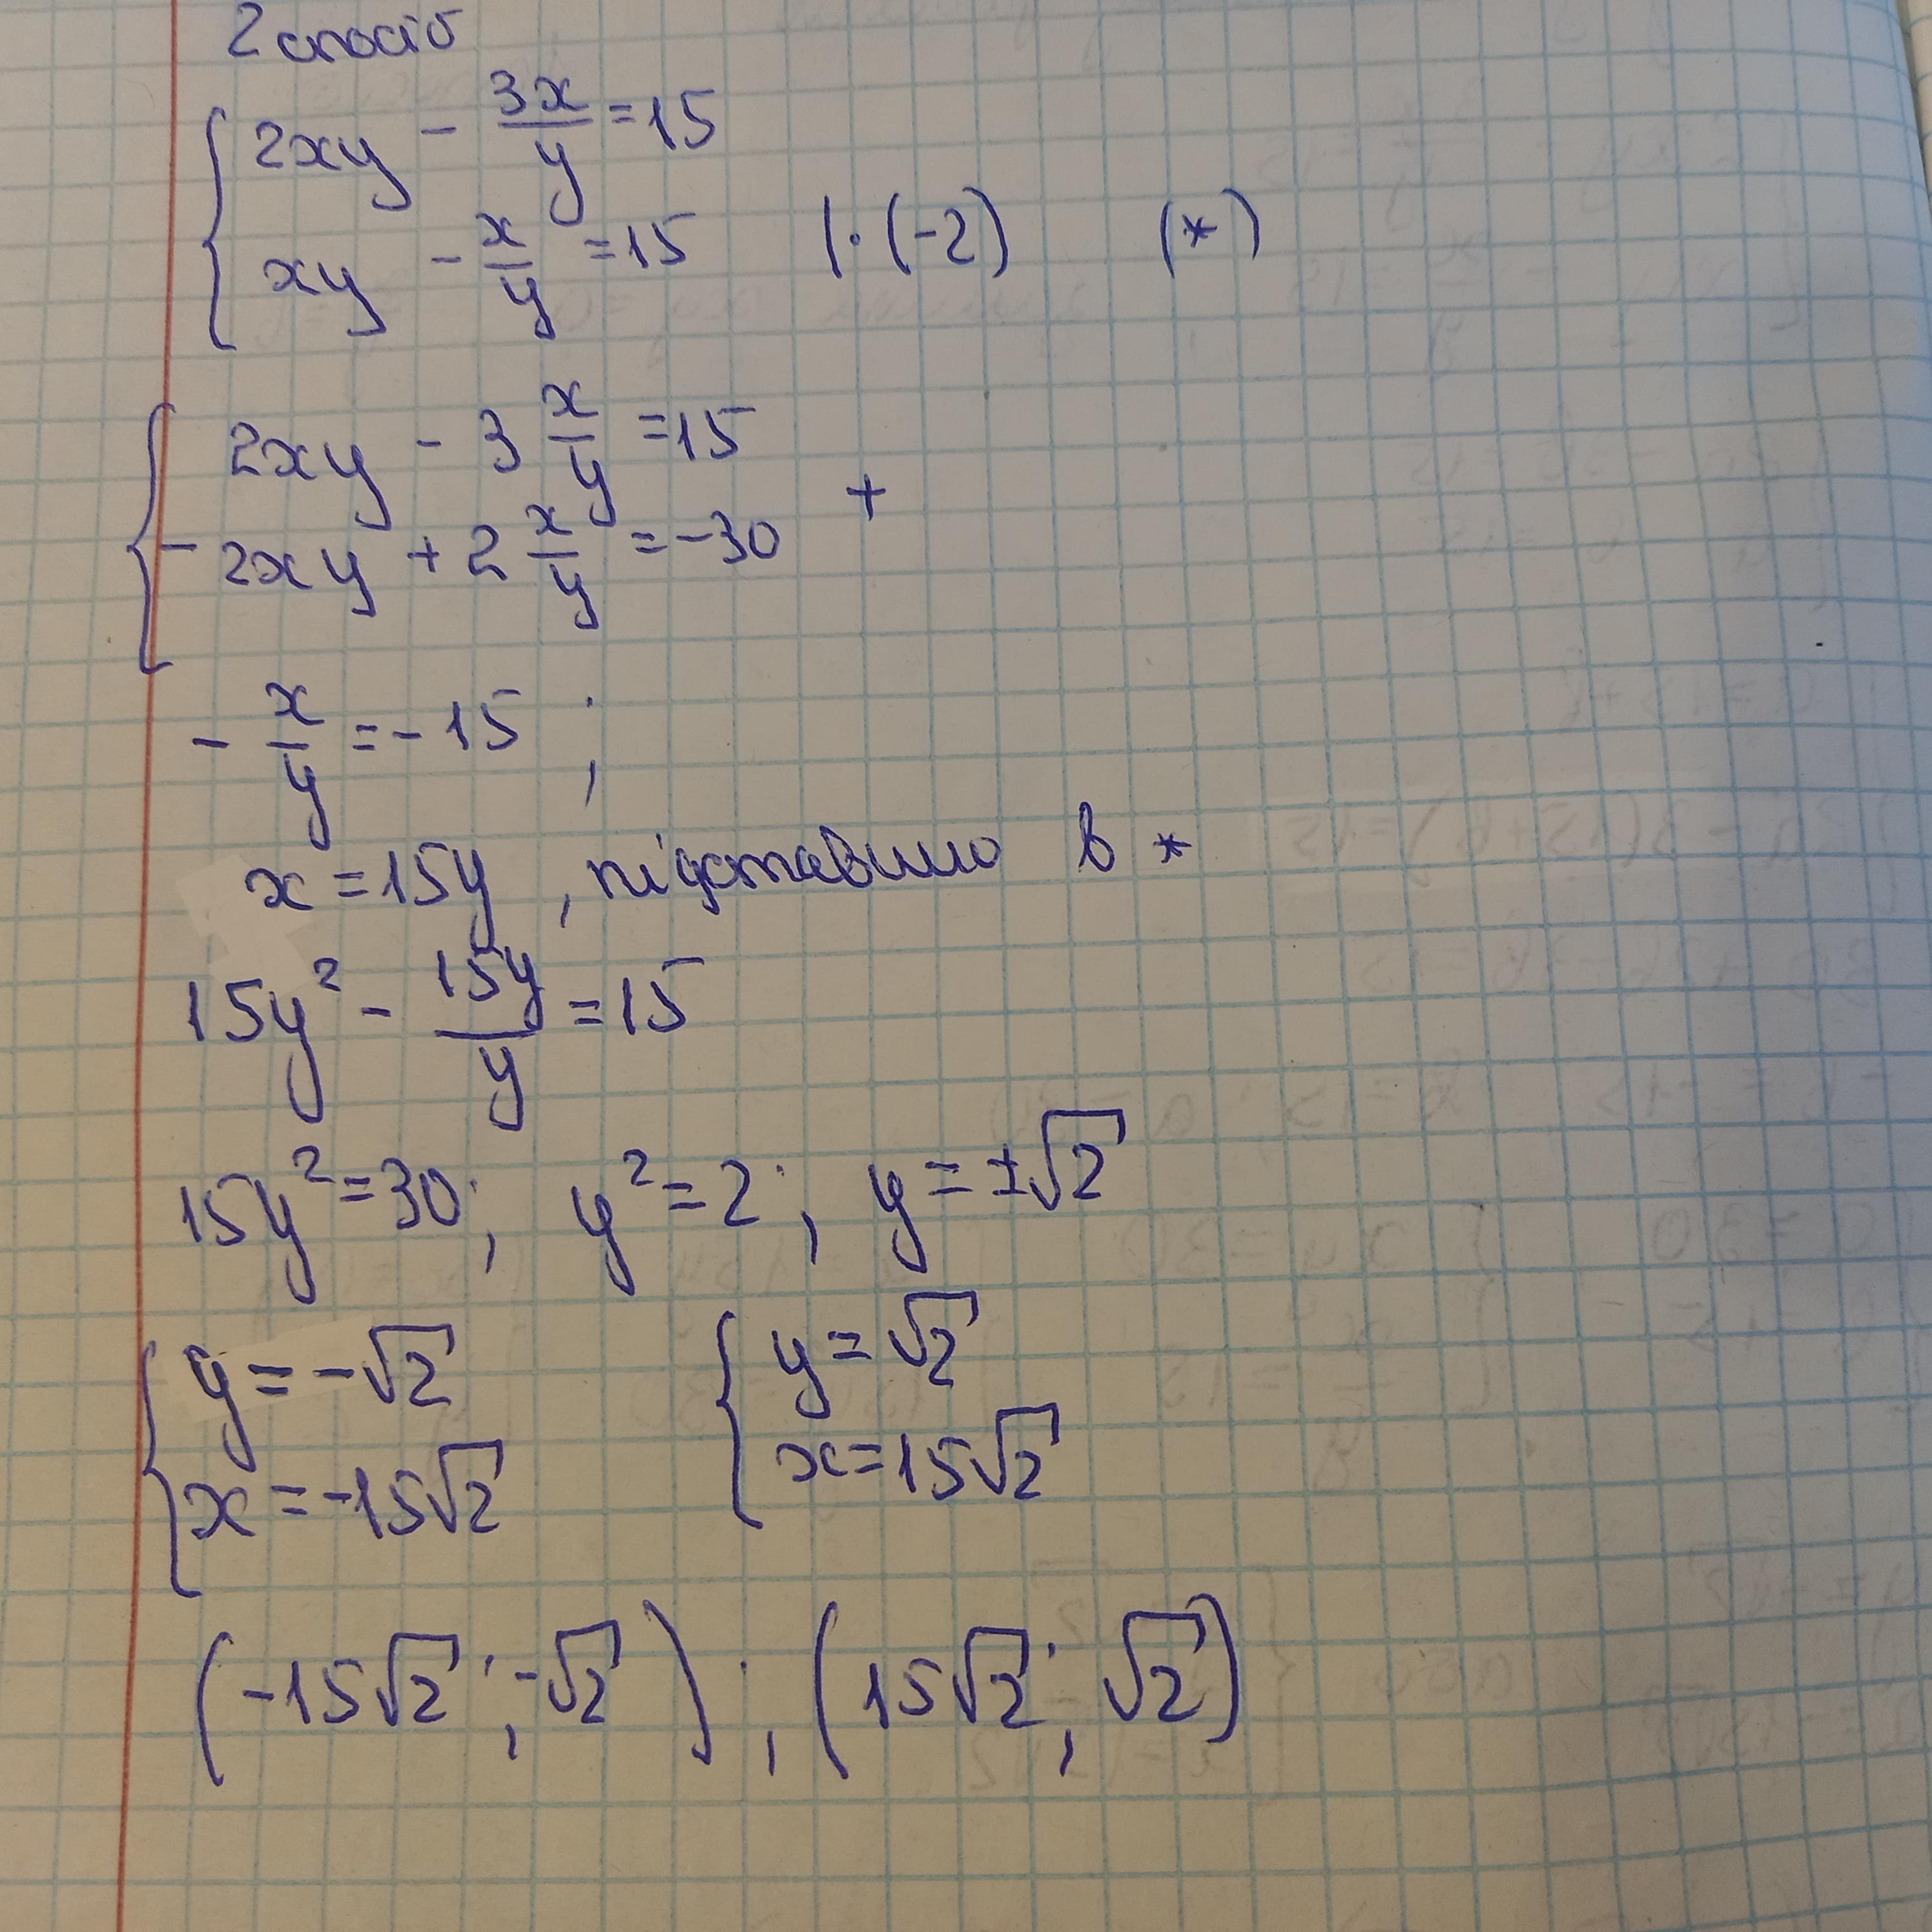 2 спосіб
2xy - 3x/y = 15
xy - x/y = 15 | · (-2) (*)
2xy - 3 x/y = 15
- 2xy + 2 x/y = -30 +
- x/y = - 15 ;
x = 15y , підставимо в *
15y² - 15y/y = 15
15y² = 30; y² = 2; y = ±√2
y = -√2 y = √2
x = -15√2 x = 15√2
(-15√2; -√2); (15√2; √2)